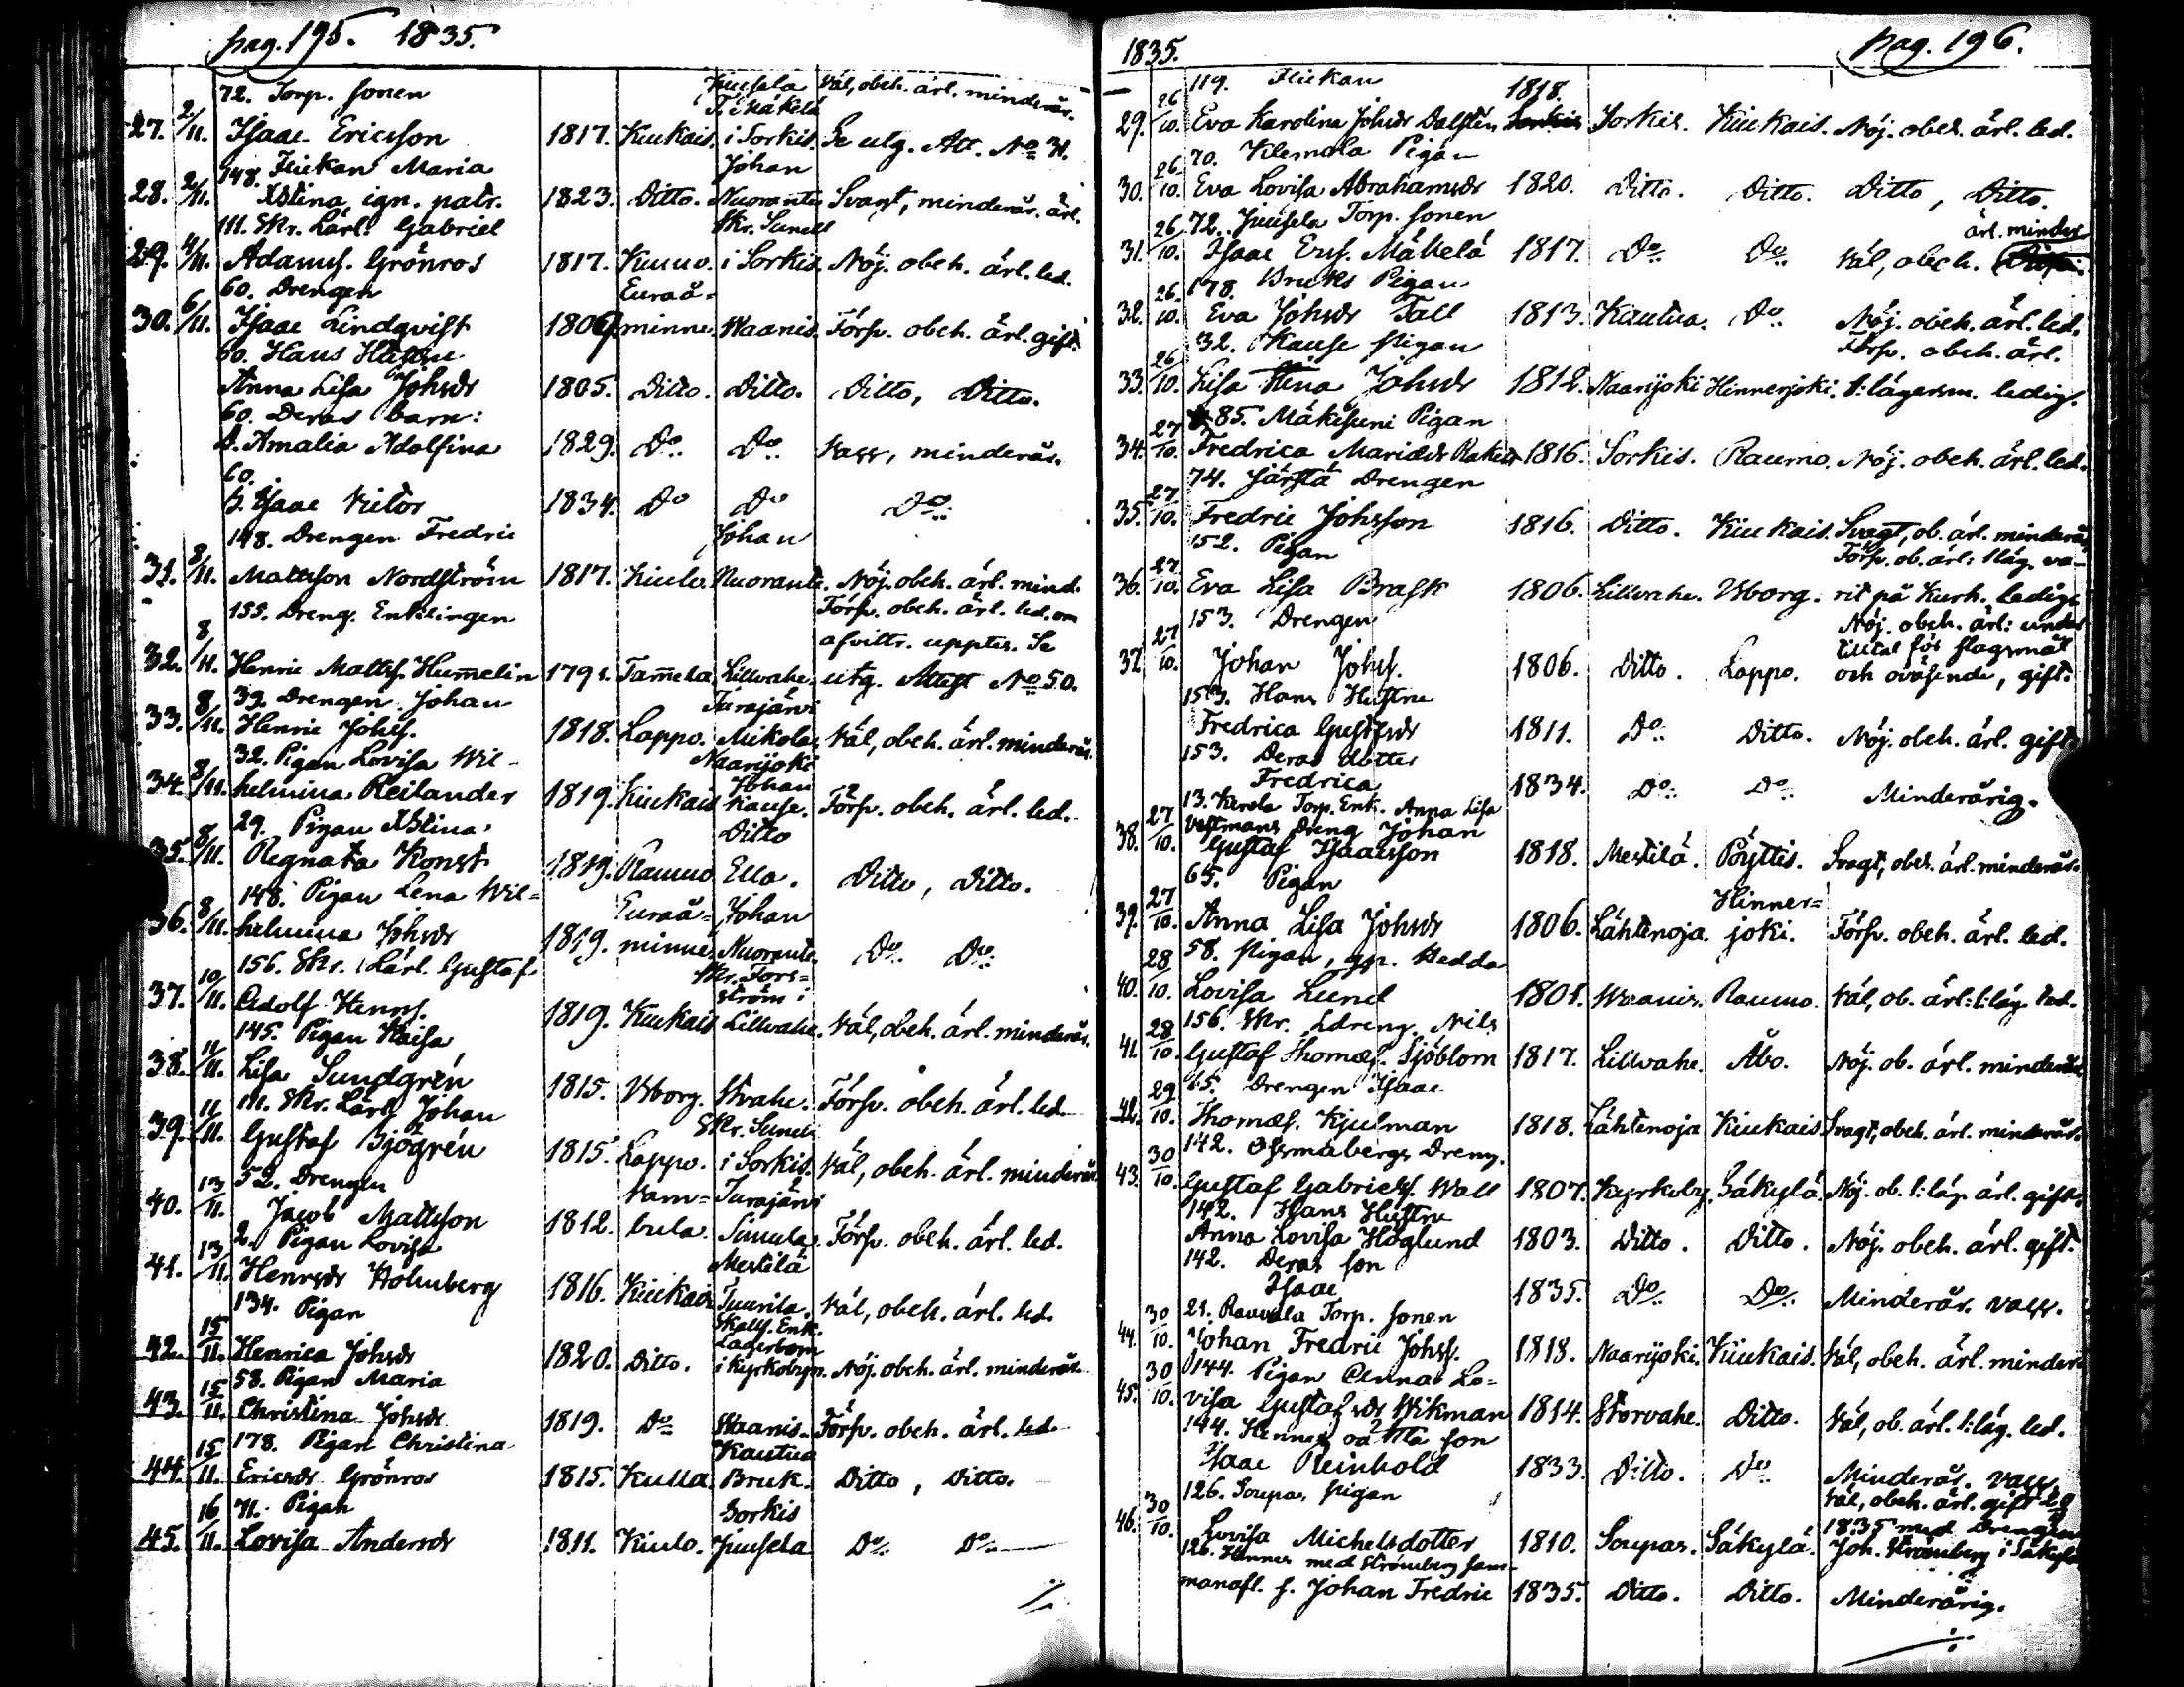 pag. 195. 1835.
72. Torp. sonen Juusela Väl, obeh. ärl. minderår.
T. Mäkelä
27. 2/11. Isaac Ericsson 1817. Kiukais. i Sorkis. Se utg. Att. No 31.
148. Flickan Maria Johan
28. 2/11. Xstina, ign. patr. 1823. Ditto. Nuorante Svagt, minderår. ärl.
111. Skr. Lärl. Gabriel Skr. Sunell
29. 4/11. Adamss. Grönros 1817. Kumo. i Sorkis. Nöj. obeh. ärl. led.
60. Drengen Euraå-
30. 6/11. Isaac Lindqvist 1809 minne. Waanis. Försv. obeh. ärl. gift.
60. Hans Hustru
Anna Lisa Johsdr 1805. Ditto. Ditto. Ditto, Ditto.
60. Deras barn:
D. Amalia Adolfina 1829. Do Do Vacc, minderår.
60.
S. Isaac Victor 1834. Do Do Do
148. Drengen Fredric Johan
31. 8/11. Mattsson Nordström 1817. Kiulo. Nuorante. Nöj. obeh. ärl. mind.
155. Dreng. Enklingen Försv. obeh. ärl. led. om
afvittr. uppter. Se
32. 8/11. Henric Matts. Hum̅elin 1791. Tam̅ela. Lillvahe. utg. Attest No 50.
33. Drengen Johan Turajärvi
33. 8/11. Henric Johss. 1818. Lappo. Mikola. Väl, obeh. ärl. minderår.
32. Pigan Lovisa Wil- Naarijoki
Johan
34. 8/11. helmina Reilander 1819. Kiukais Kause. Försv. obeh. ärl. led.
29. Pigan Xstina Ditto
35. 8/11. Regnata Konst 1819. Raumo Ella. Ditto, Ditto.
148. Pigan Lena Wil= Euraå= Johan
36. 8/11. helmina Johsdr 1819. minne. Nuorante. Do Do
156. Skr. Lärl. Gustaf Skr. Fors=
ström i
37. 10/11. Adolf Henrs. 1819. Kiukais Lillvahe. Väl, obeh. ärl. minderår.
145. Pigan Kaisa
38. 11/11. Lisa Sundgrén 1815. Wborg. Stvahe. Försv. obeh. ärl. led.
111. Skr. Lärl. Johan Skr. Sunell
39. 11/11. Gustaf Sjögrén 1815. Lappo. i Sorkis. Väl, obeh. ärl. minderår.
52. Drengen Vam= Turajärvi
40. 13/11. Jacob Mattsson 1812. bula. Simula. Försv. obeh. ärl. led.
2. Pigan Lovisa Mestilä
41. 13/11. Henrsdr Holmberg 1816. Kiukais Tuurila. Väl, obeh. ärl. led.
134. Pigan Skalls. Enk.
Lagerbom
42. 15/11. Henrica Johsdr 1820. Ditto. i Kyrkobyn. Nöj. obeh. ärl. minderår.
58. Pigan Maria
43. 15/11. Christina Johsdr 1819. Do Waanis. Försv. obeh. ärl. led.
178. Pigan Christina Kautua
44. 15/11. Ericsdr Grönros 1815. Kulla. Bruk. Ditto, Ditto.
71. Pigan Sorkis
45. 16/11. Lovisa Andersdr 1811. Kiulo. Juusela Do Do
1835. pag. 196.
119. Flickan 1818.
29. 26/10. Eva Karolina Johsdr Dalstén Sorkis. Kiukais. Nöj. obeh. ärl. led.
70. Klemola Pigan
30. 26/10. Eva Lovisa Abrahamsdr 1820. Ditto. Ditto. Ditto, Ditto.
72. Juusela Torp. sonen ärl. minder
31. 26/10. Isaac Erss. Mäkelä 1817. Do Do Väl, obeh.
178. Bruks Pigan
32. 26/10. Eva Johsdr Tall 1813. Kautua. Do Nöj. obeh. ärl. led.
32. Kause pigan Försv. obeh. ärl.
33. 26/10. Lisa Stina Johsdr 1812. Naarijoki Hinnerjoki. 1:lägersm. ledig.
85. Mäkisuni Pigan
34. 27/10. Fredrica Mariadr 1816. Sorkis. Raumo. Nöj. obeh. ärl. led.
74. Järstä Drengen
35. 27/10. Fredric Johsson 1816. Ditto. Kiukais. Svagt, ob. ärl. minderår.
152. Pigan Försv. ob. ärl: 1läg. va-
36. 27/10. Eva Lisa Brask 1806. Lillvahe. Wborg. rit på Kurh. ledig.
153. Drengen Nöj. obeh. ärl: under
tilltal för slagsmål
37. 27/10. Johan Johss. 1806. Ditto. Lappo. och oväsende, gift.
153. Hans Hustru
Fredrica Gustfsdr 1811. Do Ditto. Nöj. obeh. ärl. gift.
153. Deras dotter
Fredrica 1834. Do Do Minderårig.
13. Kerola Torp. Enk. Anna Lisa
Vestmans Dreng Johan
38. 27/10. Gustaf Isaacsson 1818. Mestilä. Pöyttis. Svagt, obeh. ärl. minderår.
65. Pigan Hinner=
39. 27/10. Anna Lisa Johsdr 1806. Lähtenoja. joki. Försv. obeh. ärl. led.
58. Pigan, gp. Hedda
40. 28/10. Lovisa Lund 1801. Waanis. Raumo. Väl, ob. ärl: 1:läg. led.
156. Skr. Ldreng. Nils
41. 28/10. Gustaf Thomass. Sjöblom 1817. Lillvahe. Åbo. Nöj. ob. ärl. minderår.
65. Drengen Isaac
42. 29/10. Thomass. Kjulman 1818. Lähtenoja Kiukais Svagt, obeh. ärl. minderår.
142. Ojsmabergs Dreng.
43. 30/10. Gustaf Gabrielss. Wall 1807. Kyrkoby. Säkylä. Nöj. ob. 1:läg. ärl. gift.
142. Hans Hustru
Anna Lovisa Höglund 1803. Ditto. Ditto. Nöj. obeh. ärl. gift.
142. Deras son
Isaac 1835. Do Do Minderår. vacc.
21. Rauvola Torp. sonen
44. 30/10. Johan Fredric Johss. 1818. Naarijoki. Kiukais. Väl, obeh. ärl. minder
144. Pigan Anna Lo=
45. 30/10. visa Gustafsdr Wikman 1814. Storvahe. Ditto. Väl, ob. ärl. 1:läg. led.
144. Hennes oäkta son
Isaac Reinhold 1833. Ditto. Do Minderår. vacc.
126. Soupas pigan Väl, obeh. ärl. gift
1835 med Drengen
46. 30/10. Lovisa Michelsdotter 1810. Soupas. Säkylä. Joh. Strömberg i Säkylä
126. Hennes med Strömberg sam-
manafl. s. Johan Fredric 1835. Ditto. Ditto. Minderårig.